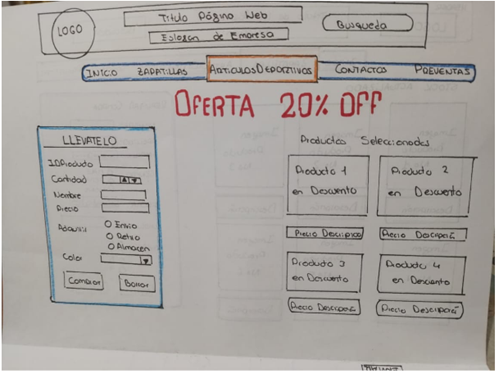 LOGO
Titulo Página Web
Eslogan de Empresa
Busqueda
INICIO ZAPATILLAS ARTICULOS DEPORTIVOS CONTACTOS PREVENTAS
OFERTA 20% OFF
LLEVATELO
IDProducto
Cantidad
Nombre
Precio
Adquirir
Envio
Retiro
Almacen
Color
Comprar Borrar
Productos Seleccionados
Producto 1
en Descuento
Producto 2
en Descuento
Precio
Precio
Producto 3
en Descuento
Producto 4
en Descuento
Precio
Precio